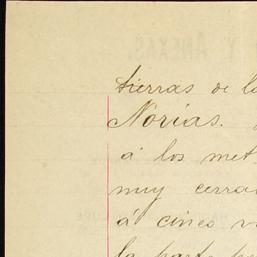 tierras de la
Norias.
á los met
muy cerra
á cinco v
la parte